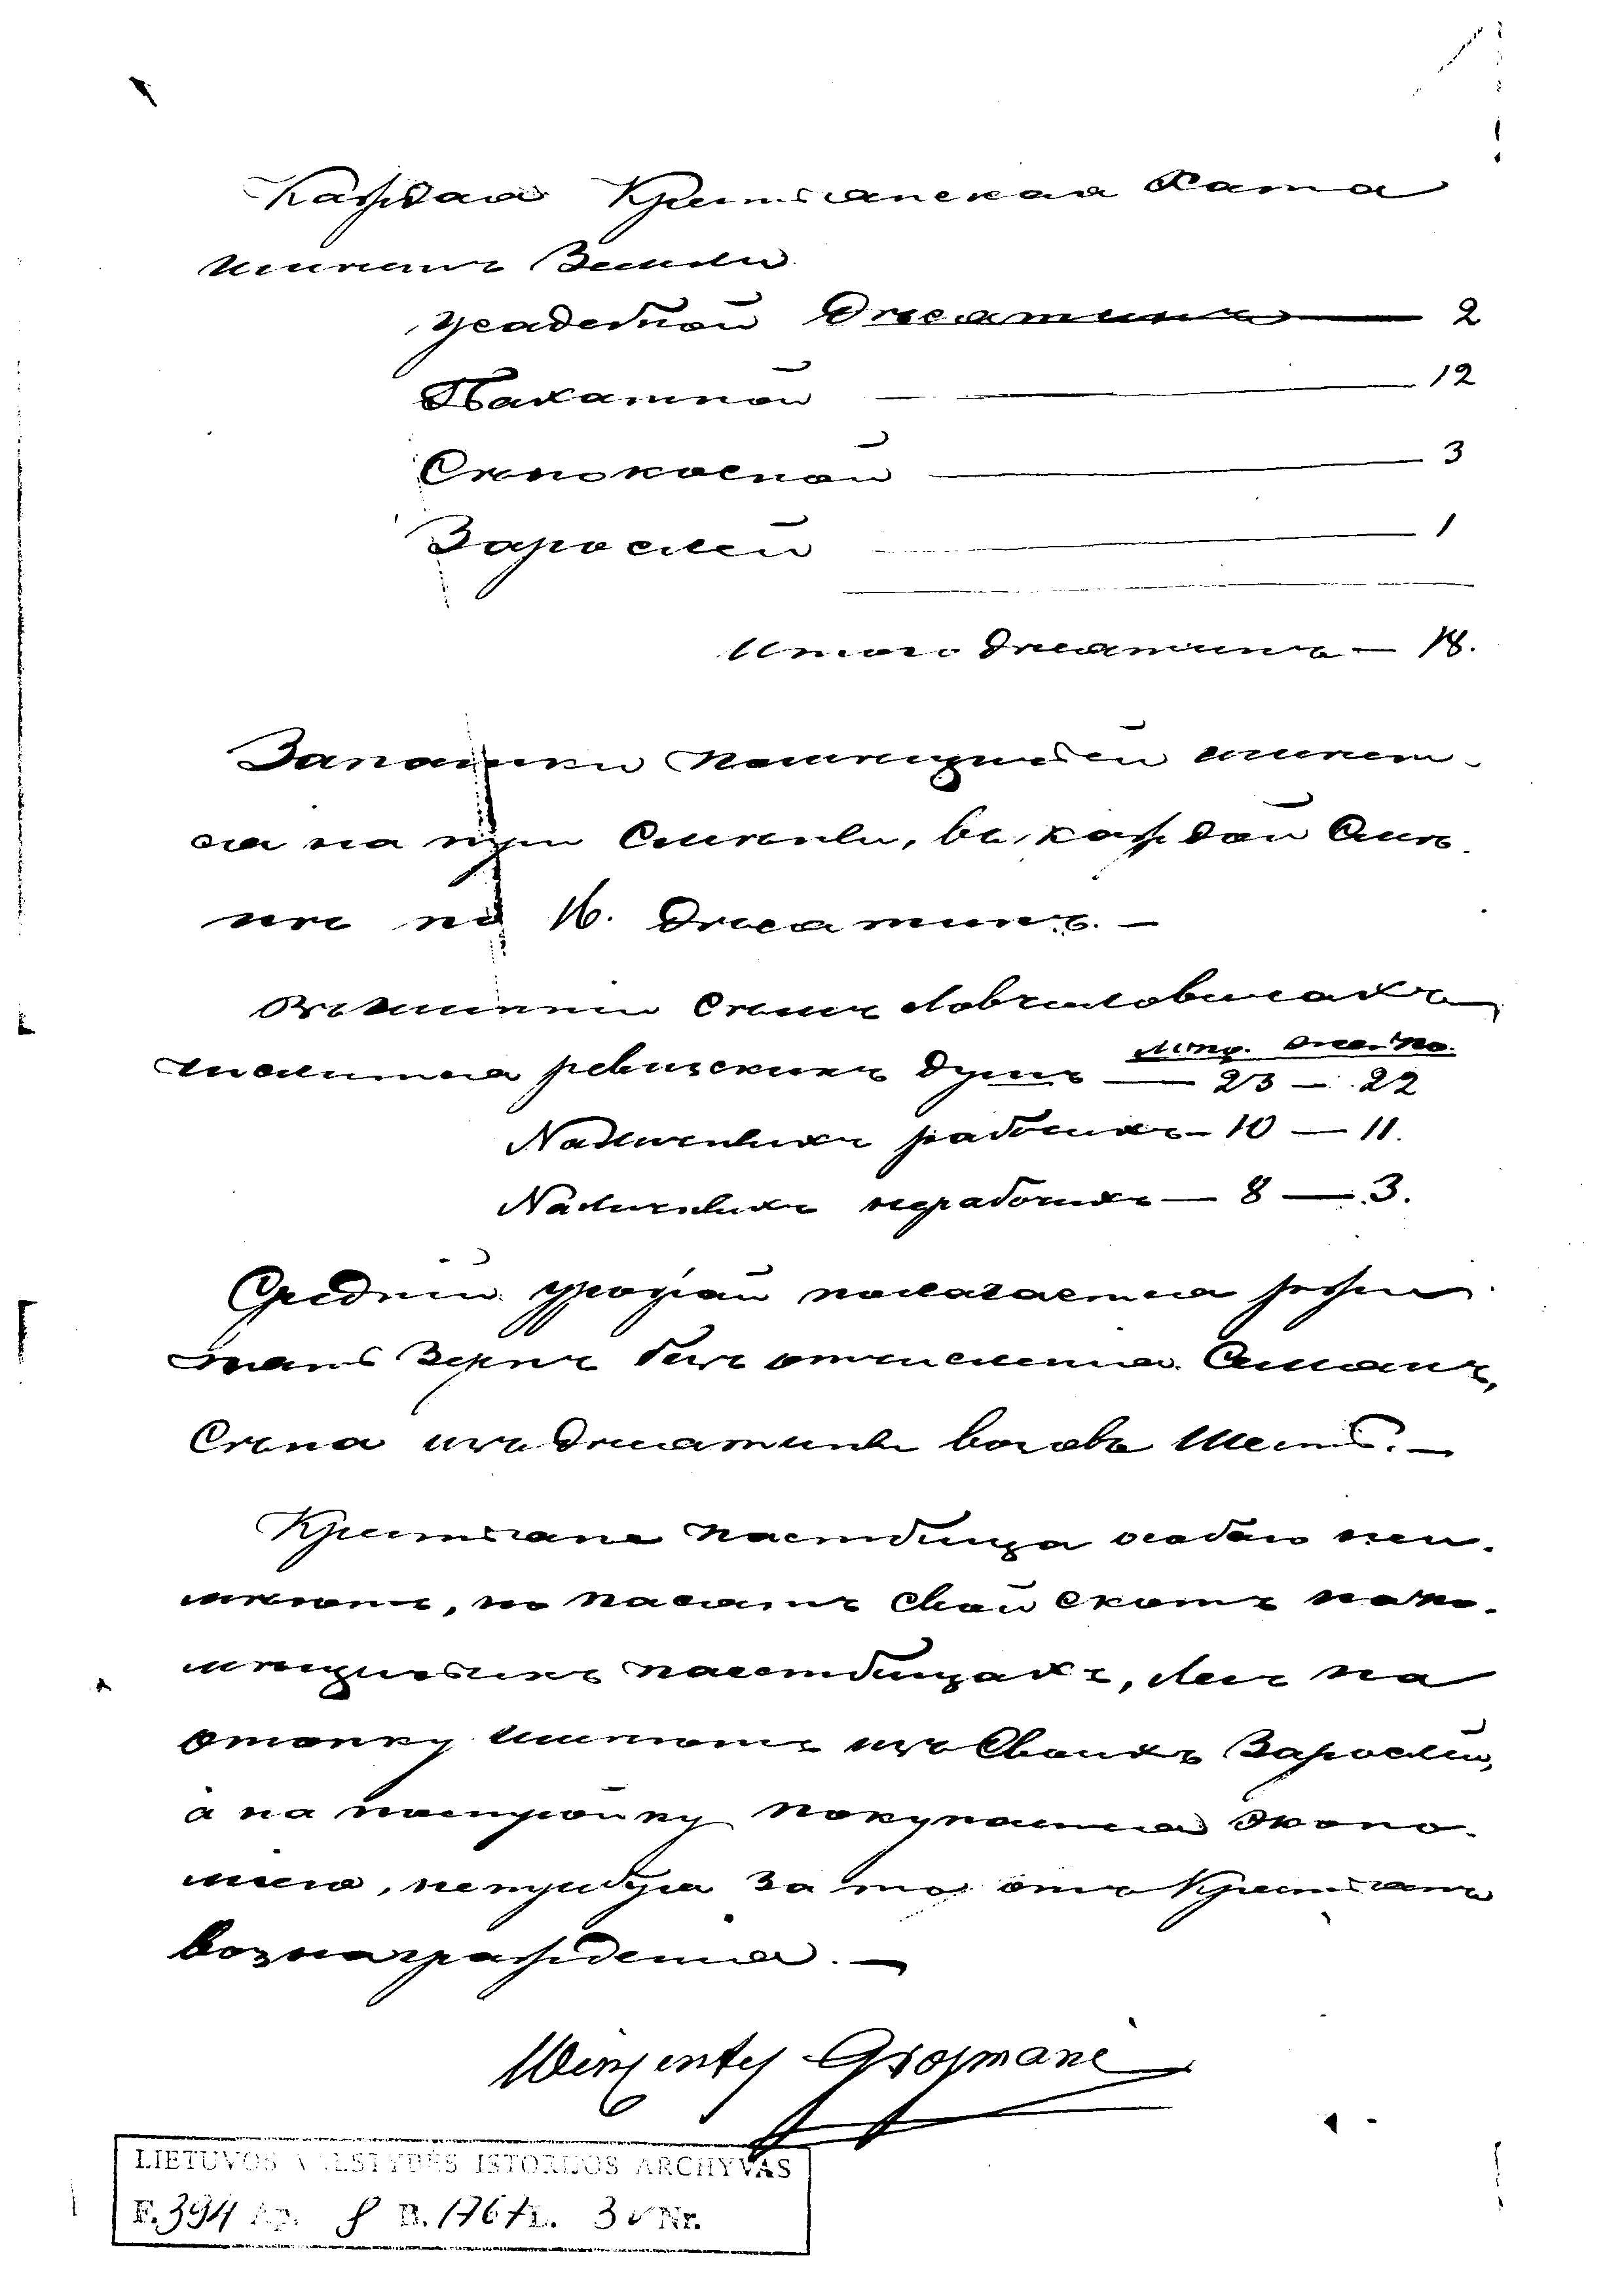 Каждая Крестьянская Хата
имеетъ Земли
усадебной Десятинъ — 2
Пахатной — 12
Сѣнокосной — 3
Зарослей — 1
Итого десятинъ — 18.
Запашки помещичьей имеет-
ся на три Смѣны, въ каждой Смѣ-
не по 16. десятинъ. —
Въ имении Селѣ
муж. жен. по.
числится ревизскихъ душъ — 23 — 22
Наличныхъ рабочихъ — 10 — 11.
Наличныхъ нерабочихъ — 8 — 3.
Средній урожай полагается ржи
зернъ безъ отчисления Семянъ,
Сена изъ десятины возовъ Шесть. —
Крестьяне пастбища особаго неи-
меютъ, но пасатъ свой скотъ на по-
мещичьихъ пастбищахъ, лесъ на
отопку имеютъ изъ Своихъ Зарослей,
а на постройку покупается Эконо-
міею, нетребуя за то отъ Крестьянъ
вознаграждения. —
LIETUVOS VALSTYBĖS ISTORIJOS ARCHYVAS
F. 394 Ap. 8 B. 1767 L. 3 v Nr.